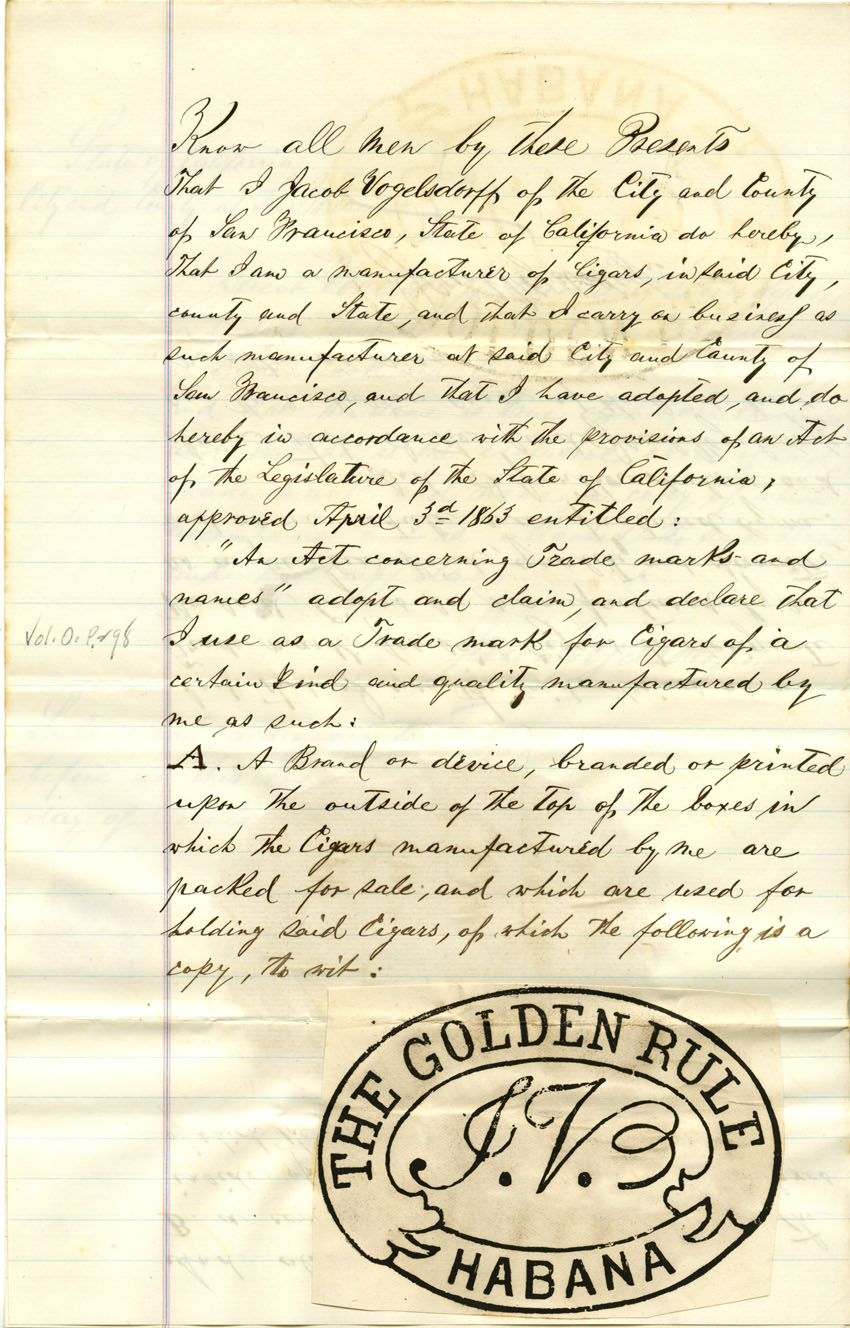 Know all men by these Presents
That I Jacob Vogelsdorff of the City and County
of San Francisco, State of California do hereby,
That I am a manufacturer of Cigars, in said City,
county and State, and that I carry on business as
such manufacturer at said City and County of
San Francisco, and that I have adopted, and do
hereby in accordance with the provisions of an Act
of the Legislature of the State of California,
approved April 3d 1863 entitled:
"An Act concerning Trade marks and
names" adopt and claim, and declare that
Vol. O. P. 498
I use as a Trade mark for Cigars of a
certain kind and quality manufactured by
me as such:
A. A Brand or device, branded or printed
upon the outside of the top of the boxes in
which the Cigars manufactured by me are
packed for sale, and which are used for
holding said Cigars, of which the following is a
copy, to wit:
THE GOLDEN RULE
J.V.
HABANA